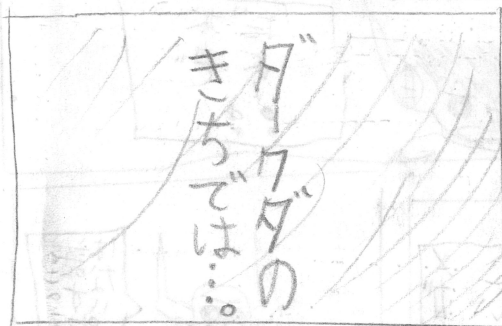 ダークダの
きちでは…。